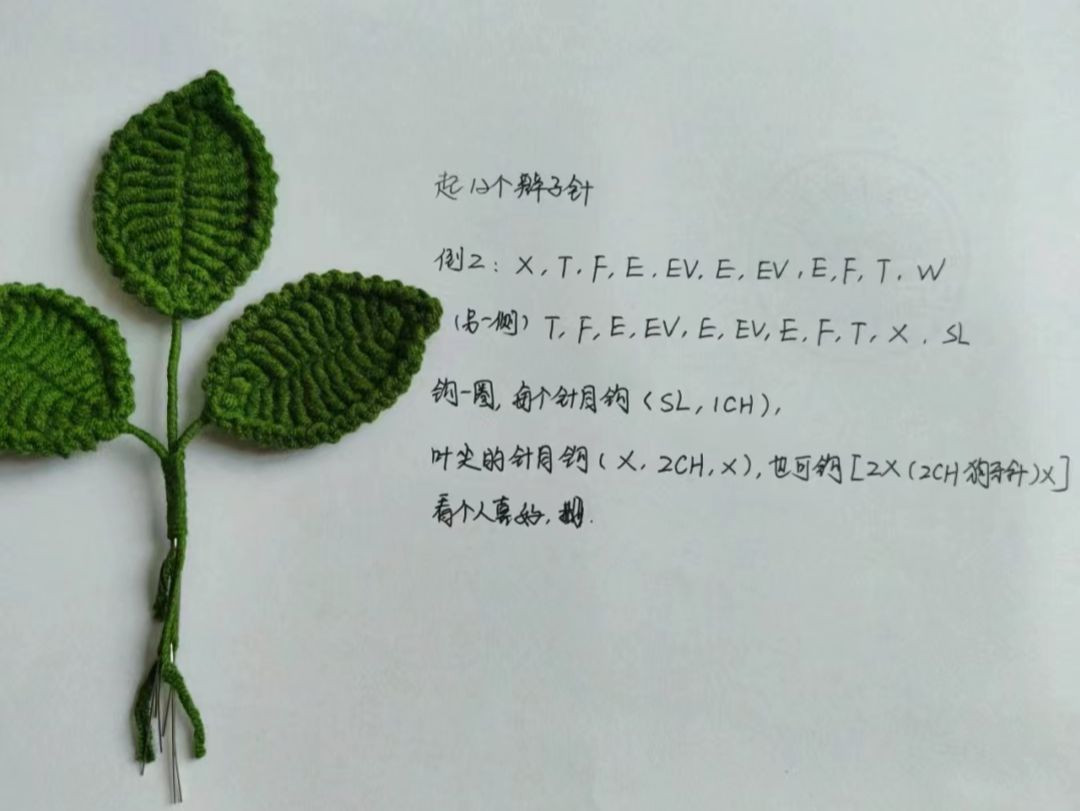 起12个辫子针
倒2: X, T, F, E, EV, E, EV, E, F, T, W
(另一侧) T, F, E, EV, E, EV, E, F, T, X, SL
钩一圈, 每个针目钩 (SL, 1CH),
叶尖的针目钩 (X, 2CH, X), 也可钩 [2X (2CH狗牙针) X]
看个人喜好,